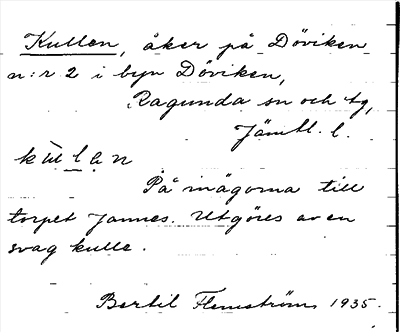 Kullen, åker på Döviken
n:r 2 i byn Döviken,
Ragunda sn och tg,
Jämtl. l.
kùlan
På inägorna till
torpet Jannes. Utgöres av en
svag kulle.
Bertil Flemström 1935.